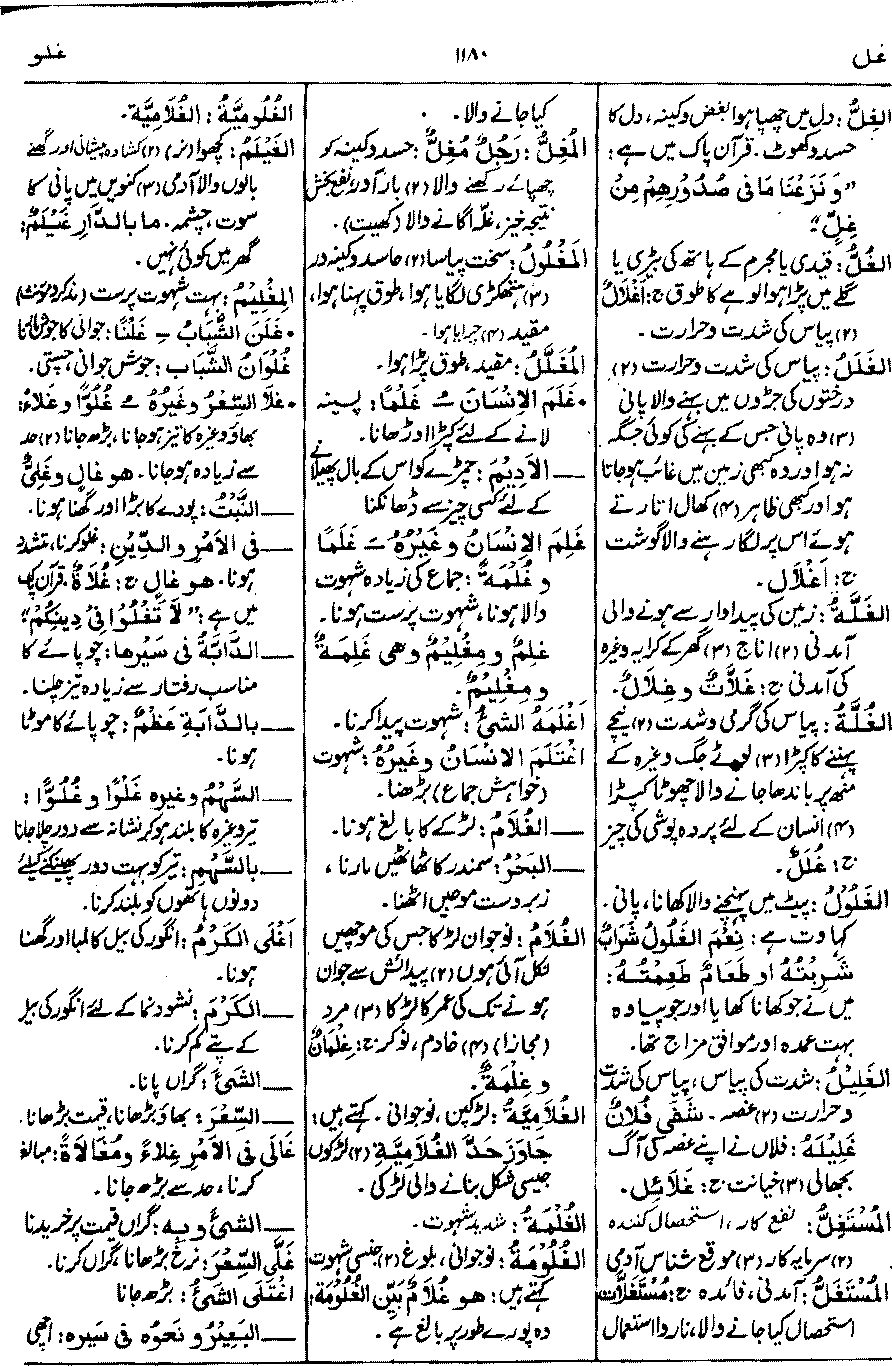 غل
۱۱۸۰
غلو
الغِلُّ : دل میں چھپا ہوا بغض وکینہ، دل کا
حسد وکھوٹ۔ قرآن پاک میں ہے :
”وَ نَزَعْنَا مَا فی صُدُوْرِهِمْ مِنْ
غِلٍّ“
الغُلُّ : قیدی یا مجرم کے ہاتھ کی بیڑی یا
گلے میں پڑا ہوا لوہے کا طوق ج : اَغْلَالٌ
(۲) پیاس کی شدت وحرارت ۔
الغَلَلُ : پیاس کی شدت وحرارت (۲)
درختوں کی جڑوں میں بہنے والا پانی
(۳) وہ پانی جس کے بہنے کی کوئی جگہ
نہ ہو اور وہ کبھی زمین میں غائب ہو جاتا
ہو اور کبھی ظاہر (۴) کھال اتارتے
ہوئے اس پر لگا رہنے والا گوشت
ج : اَغْلَال ۔
الغَلَّةُ : زمین کی پیداوار سے ہونے والی
آمدنی (۲) اناج (۳) گھر کے کرایہ وغیرہ
کی آمدنی ج : غَلَّاتٌ وغِلَالٌ ۔
الغُلَّةُ : پیاس کی گرمی وشدت (۲) نیچے
پہننے کا کپڑا (۳) لوٹے جگ وغیرہ کے
منھ پر باندھا جانے والا چھوٹا کپڑا
(۴) انسان کے لئے پردہ پوشی کی چیز
ج : غُلَلٌ ۔
الغَلُوْلُ : پیٹ میں پہنچنے والا کھانا، پانی ۔
کہاوت ہے : نِعْمَ الغَلُولُ شَرَابٌ
شَرِبْتُهُ او طَعَامٌ طَعِمْتُهُ :
میں نے جو کھانا کھایا اور جو پیا وہ
بہت عمدہ اور موافق مزاج تھا ۔
الغَلِيْلُ : شدت کی پیاس ، پیاس کی شدت
وحرارت (۲) غصہ ۔ شَفَى فُلَانٌ
غَلِيْلَهُ : فلاں نے اپنے غصہ کی آگ
بجھالی (۳) خیانت ج : غَلَائِل ۔
المُسْتَغِلُّ : نفع کار ، استحصال کنندہ
(۲) سرمایہ کار (۳) موقع شناس آدمی
المُسْتَغَلُّ : آمدنی ، فائدہ ج : مُسْتَغَلَّات
استحصال کیا جانے والا ، ناروا استعمال
کیا جانے والا ۔
المُغِلُّ : رَجُلٌ مُغِلٌّ : حسد وکینہ کو
چھپائے رکھنے والا (۲) بار آور، نفع بخش
نتیجہ خیز، غلّہ اگانے والا (کھیت) ۔
المَغْلُولُ : سخت پیاسا (۲) حاسد وکینہ ور
(۳) ہتھکڑی لگایا ہوا ، طوق پہنا ہوا ،
مقید (۴) چرایا ہوا ۔
المُغَلَّلُ : مقید ، طوق پڑا ہوا ۔
• غَلَمَ الاِنْسَانَ ـُ غَلْمًا : پسینہ
لانے کے لئے کپڑا اوڑھانا ۔
— الاَدِيْمَ : چمڑے کو اس کے بال پھیلانے
کے لئے کسی چیز سے ڈھانکنا
غَلِمَ الاِنْسَانُ وغَيْرُهُ ـَ غَلَمًا
وغُلْمَةً : جماع کی زیادہ شہوت
والا ہونا ، شہوت پرست ہونا ۔
غَلِمٌ ومِغْلِيْمٌ وهی غَلِمَةٌ
ومِغْلِيْمٌ ۔
اَغْلَمَهُ الشَّئُ : شہوت پیدا کرنا ۔
اغْتَلَمَ الانْسَانُ وغَيْرُهُ : شہوت
(خواہش جماع) بڑھنا ۔
— الغُلَامُ : لڑکے کا بالغ ہونا ۔
— البَحْرُ : سمندر کا ٹھاٹھیں مارنا ،
زبردست موجیں اٹھنا ۔
الغُلَامُ : نوجوان لڑکا جس کی مونچھیں
نکل آئی ہوں (۲) پیدائش سے جوان
ہونے تک کی عمر کا لڑکا (۳) مرد
(مجازا) (۴) خادم ، نوکر ج : غِلْمَانٌ
وغِلْمَةٌ ۔
الغُلَامِيَّةُ : لڑکپن ، نوجوانی ۔ کہتے ہیں :
جَاوَزَ حَدَّ الغُلَامِيَّةِ (۲) لڑکوں
جیسی شکل بنانے والی لڑکی ۔
الغُلْمَةُ : شدید شہوت ۔
الغُلُوْمَةُ : نوجوانی ، بلوغ (۲) جنسی شہوت
کہتے ہیں : هو غُلَامٌ بَيِّنُ الغُلُوْمَةِ :
وہ پورے طور پر بالغ ہے ۔
الغُلُوْمِيَّةُ : الغُلَامِيَّة ۔
الغَيْلَمُ : کچھوا (نر) (۲) کشادہ پیشانی اور گھنے
بالوں والا آدمی (۳) کنویں میں پانی کا
سوت ، چشمہ ۔ ما بالدَّارِ غَيْلَمٌ :
گھر میں کوئی نہیں ۔
المِغْلِيْمُ : بہت شہوت پرست (مذکر ومؤنث)
• غَلَنَ الشَّبَابُ ـِ غَلْنًا : جوانی کا جوش مارنا
غُلْوَانُ الشَّبَاب : جوش جوانی ، چستی ۔
• غَلَا السِّعْرُ وغَيْرُهُ ـُ غُلُوًّا وغَلَاءً :
بھاؤ وغیرہ کا تیز ہو جانا ، بڑھ جانا (۲) حد
سے زیادہ ہو جانا ۔ هو غالٍ وغَلِيٌّ
— النَّبْتُ : پودے کا بڑا اور گھنا ہونا ۔
— فی الاَمْرِ والدِّيْنِ : غلو کرنا ، تشدد
ہونا ۔ هو غالٍ ج : غُلَاةٌ ۔ قرآن پاک
میں ہے : ”لَا تَغْلُوْا فِیْ دِيْنِكُمْ“
— الدَّابَّةُ فی سَيْرِها : چوپائے کا
مناسب رفتار سے زیادہ تیز چلنا ۔
— بالدَّابَةِ عَظْمٌ : چوپائے کا موٹا
ہونا ۔
— السَّهْمُ وغيره غَلْوًا وغُلُوًّا :
تیر وغیرہ کا بلند ہو کر نشانہ سے دور چلا جانا
— بالسَّهْمِ : تیر کو بہت دور پھینکنے کیلئے
دونوں ہاتھوں کو بلند کرنا ۔
اَغْلَى الكَرْمُ : انگور کی بیل کا لمبا اور گھنا
ہونا ۔
— الكَرْمَ : نشوونما کے لئے انگور کی بیل
کے پتے کم کرنا ۔
— الشَّئَ : گراں پانا ۔
— السِّعْرَ : بھاؤ بڑھانا ، قیمت بڑھانا ۔
غَالَى فی الاَمْرِ غِلاءً ومُغَالَاةً : مبالغہ
کرنا ، حد سے بڑھ جانا ۔
— الشئَ وبه : گراں قیمت پر خریدنا
غَلَّى السِّعْرَ : نرخ بڑھانا ، گراں کرنا ۔
اغْتَلَى الشَّئُ : بڑھ جانا
— البَعِيْرُ ونَحْوُه فی سَيْرِه : اچھی